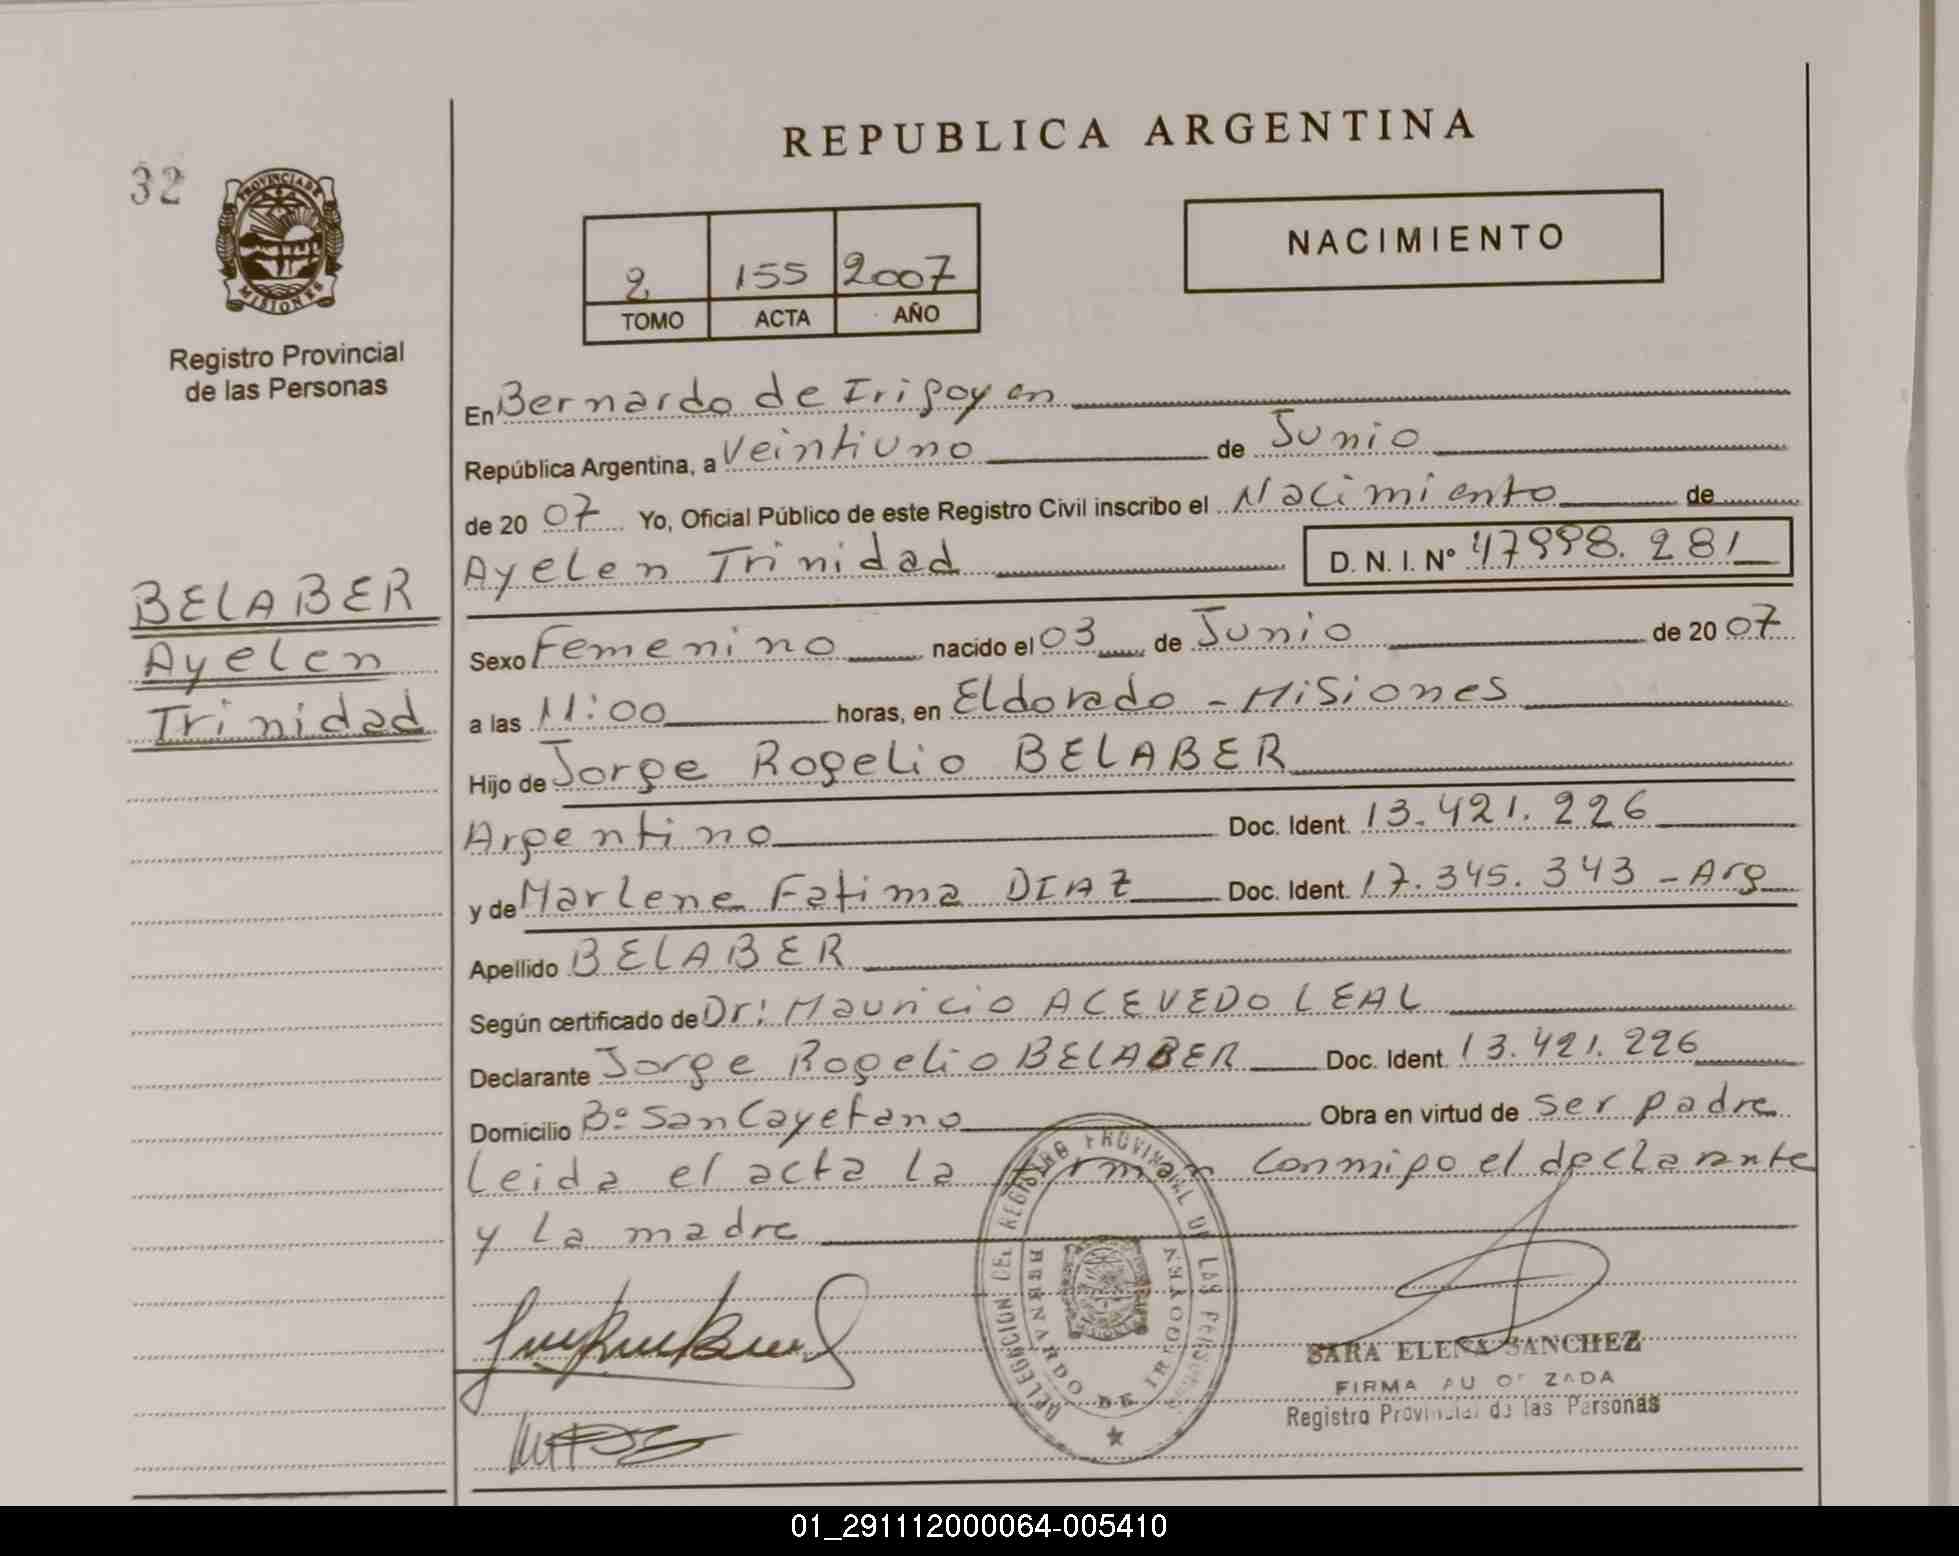 REPUBLICA ARGENTINA
32
PROVINCIA DE
MISIONES
Registro Provincial
de las Personas
NACIMIENTO
2 155 2007
TOMO ACTA AÑO
En Bernardo de Irigoyen
República Argentina, a Veintiuno de Junio
de 20 07 Yo, Oficial Público de este Registro Civil inscribo el Nacimiento de
Ayelen Trinidad D. N. I. Nº 47998.281
BELABER
Ayelen
Trinidad
Sexo Femenino nacido el 03 de Junio de 20 07
a las 11:00 horas, en Eldorado - Misiones
Hijo de Jorge Rogelio BELABER
Argentino Doc. Ident. 13.421.226
y de Marlene Fatima DIAZ Doc. Ident. 17.345.343 - Arg
Apellido BELABER
Según certificado de Dr: Mauricio ACEVEDO LEAL
Declarante Jorge Rogelio BELABER Doc. Ident. 13.421.226
Domicilio Bº San Cayetano Obra en virtud de ser padre
Leida el acta la firman conmigo el declarante
y la madre
DELEGACION DEL REGISTRO PROVINCIAL DE LAS PERSONAS
BERNARDO DE IRIGOYEN
SARA ELENA SANCHEZ
FIRMA AUTORIZADA
Registro Provincial de las Personas
01_291112000064-005410